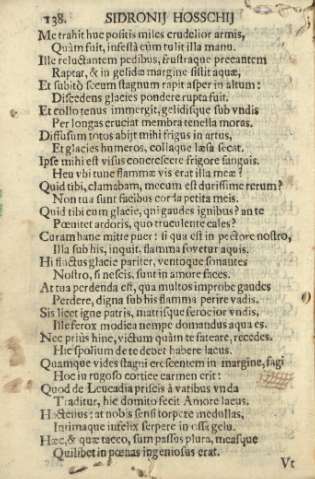 138. SIDRONIJ HOSSCHIJ
Me trahit huc positis miles crudelior armis,
Quàm fuit, infestâ cùm tulit illa manu.
Ille reluctantem pedibus, frustraque precantem
Raptat, & in gelidæ margine sistit aquæ,
Et subitò secum stagnum rapit asper in altum:
Discedens glacies pondere rupta fuit.
Et collo tenus immergit, gelidisque sub vndis
Per longas cruciat membra tenella moras.
Diffusum totos abijt mihi frigus in artus,
Et glacies humeros, collaque læsa secat.
Ipse mihi est visus concrescere frigore sanguis.
Heu vbi tunc flammæ vis erat illa meæ?
Quid tibi, clamabam, mecum est durissime rerum?
Non tua sunt facibus corda petita meis.
Quid tibi cum glacie, qui gaudes ignibus? an te
Pœnitet ardoris, quo truculente cales?
Curam hanc mitte puer: si qua est in pectore nostro,
Illa sub his, inquit, flamma fovetur aquis.
Hi fluctus glacie pariter, ventoque sonantes
Nostro, si nescis, sunt in amore faces.
At tua perdenda est, qua multos improbe gaudes
Perdere, digna sub his flamma perire vadis.
Sis licet igne patris, matrisque ferocior vndis,
Ille ferox modica nempe domandus aqua es.
Nec priùs hinc, victum quàm te fateare, recedes.
Hic spolium de te debet habere lacus.
Quamque vides stagni crescentem in margine, fagi
Hoc in rugoso cortice carmen erit:
Quod de Leucadia priscis à vatibus vnda
Traditur, hic domito fecit Amore lacus.
Hactenus: at nobis sensi torpere medullas,
Intimaque infelix serpere in ossa gelu.
Hæc, & quæ taceo, sum passus plura, measque
Quilibet in pœnas ingeniosus erat.
Vt